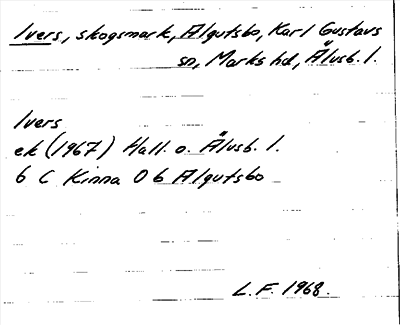 Ivers, skogsmark, Algutsbo, Karl Gustavs
sn, Marks hd, Älvsb. l.
Ivers
ek (1967) Hall. o. Älvsb. l.
6 C Kinna 0 b Algutsbo
L.F. 1968.